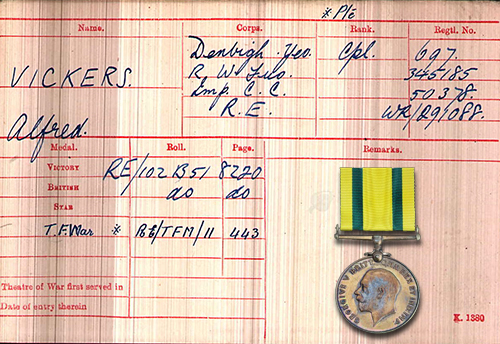 * P/c
Name. Corps. Rank. Regtl. No.
VICKERS. Denbigh. Yeo. Cpl. 697.
R. W. Fus. 345185
Imp. C. C. 50378.
R. E. WR/291088.
Alfred.
Medal. Roll. Page. Remarks.
VICTORY RE/102 B51 8220
BRITISH do do
STAR
T.F.War * RE/TFM/11 443
Theatre of War first served in
Date of entry therein
K. 1380